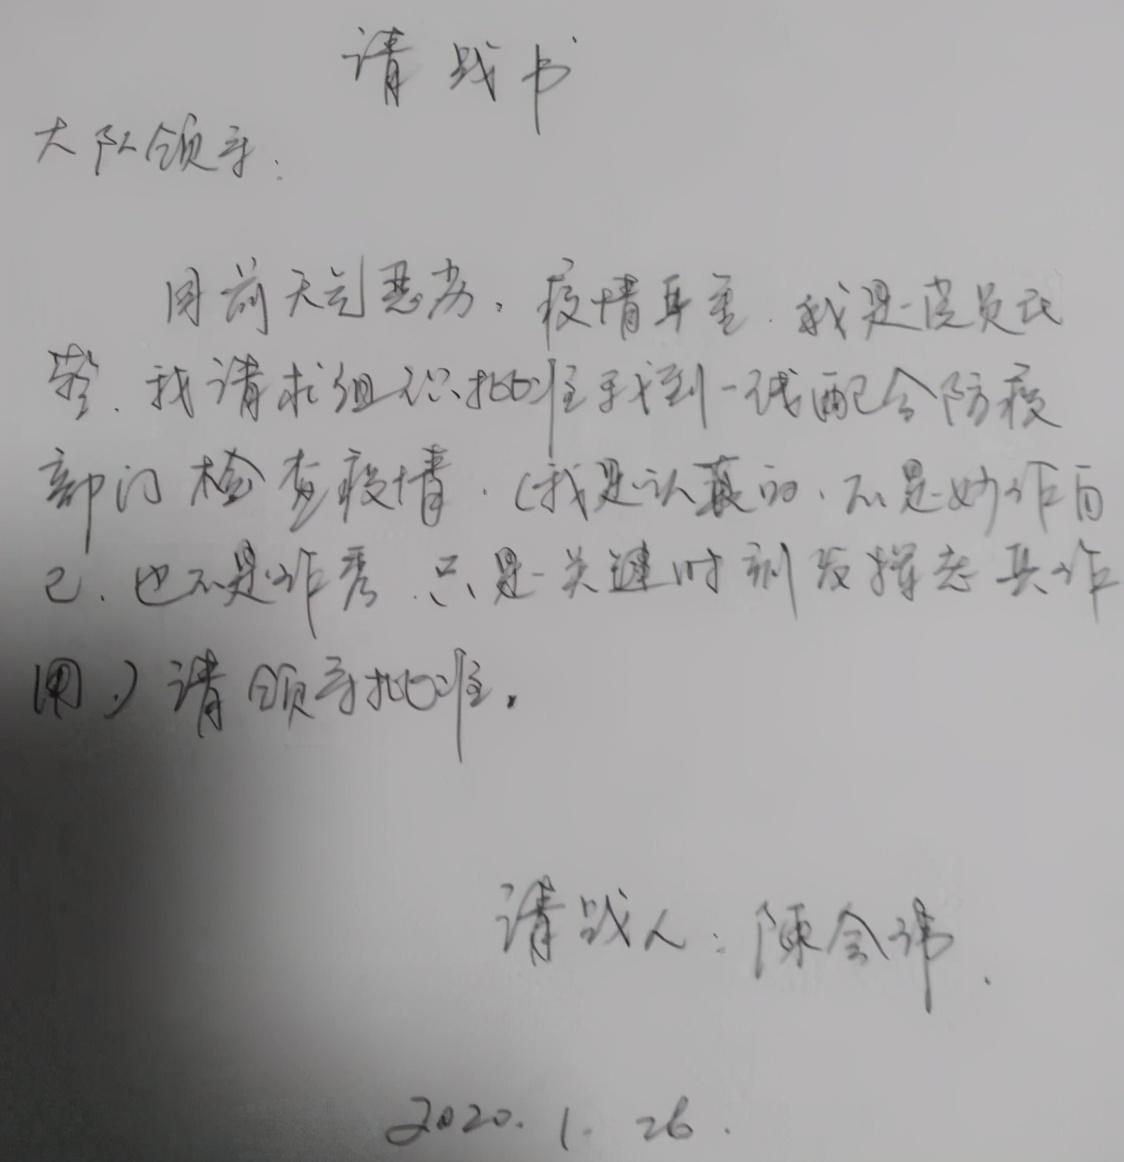 请战书
大队领导:
目前天气恶劣,疫情严重.我是党员民
警.我请求组织批准我到一线配合防疫
部门检查疫情.(我是认真的.不是炒作自
己.也不是作秀.只是关键时刻发挥老兵作
用.)请领导批准.
请战人:陳会
2020.1.26.